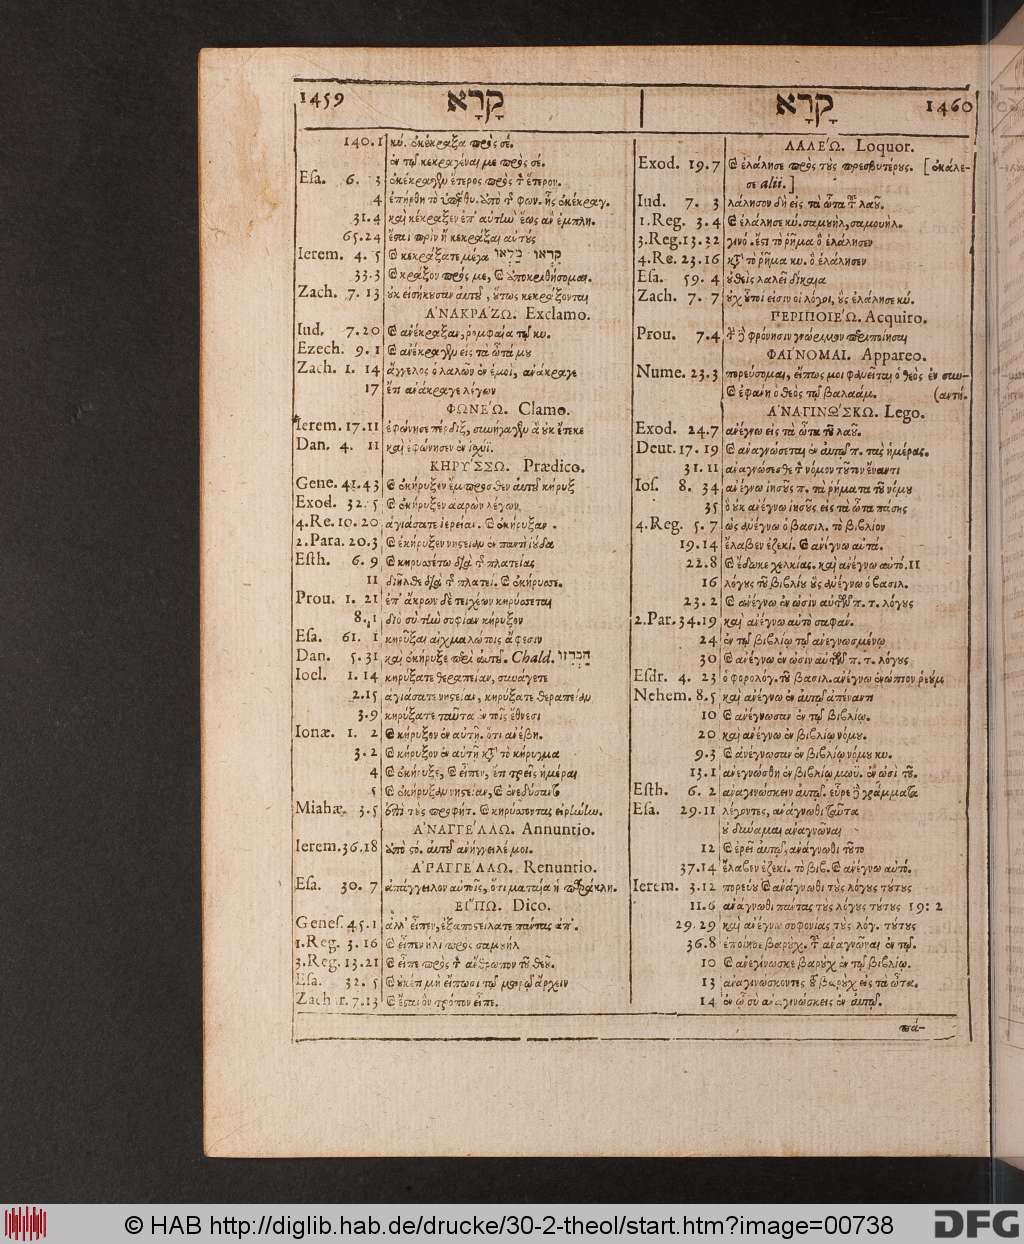 1459 קָרָא
140.1 κύ. ἐκέκραξα πρός σέ.
ἐν τῷ κεκραγέναι με πρός σέ.
Esa. 6. 3 ἐκέκραγον ἕτερος πρὸς τ ἕτερον.
4 ἐπήρθη τὸ
31.4 καὶ κέκραξεν ἐπ' αὐτῷ ἕως ἂν ἐμπλη.
65.24 ἔσται πρὶν ἢ κεκράξαι αὐτούς
Ierem. 4. 5 καὶ κεκράξατε μέγα קראו מלאו
33.3 καὶ κέκραξον πρός με, καὶ ἀποκριθήσομαι.
Zach. 7. 13 οὐκ εἰσήκουσαν αὐτοῦ, οὕτως κεκράξονται
ἈΝΑΚΡΑΖΩ. Exclamo.
Iud. 7.20 καὶ ἀνέκραξαν, ῥομφαία τῷ κυ.
Ezech. 9. 1 καὶ ἀνέκραγον εἰς τὰ ὦτά μου
Zach. 1. 14 ἄγγελος ὁ λαλῶν ἐν ἐμοὶ, ἀνάκραγε
17 ἔτι ἀνάκραγε λέγων
ΦΩΝΕΏ. Clamo.
Ierem. 17.11 ἐφώνησε πέρδιξ, συνήγαγον ἃ οὐκ ἔτεκε
Dan. 4. 11 καὶ ἐφώνησεν ἐν ἰσχύϊ.
ΚΗΡΎΣΣΩ. Prædico.
Gene. 41.43 καὶ ἐκήρυξεν ἔμπροσθεν αὐτοῦ κήρυξ
Exod. 32. 5 καὶ ἐκήρυξεν ἀαρὼν λέγων
4.Re. 10. 20 ἁγιάσατε ἱερείαν. καὶ ἐκήρυξαν.
2.Para. 20.3 καὶ ἐκήρυξεν νηστείαν ἐν παντὶ ἰούδα
Esth. 6. 9 καὶ κηρυσσέτω διὰ τ πλατείας
11 διῆλθε διὰ τ πλατεί. καὶ ἐκήρυσσε.
Prou. 1. 21 ἐπ' ἄκρων δὲ τειχέων κηρύσσεται
8.1 διὸ σὺ τὴν σοφίαν κήρυξον
Esa. 61. 1 κηρῦξαι αἰχμαλώτοις ἄφεσιν
Dan. 5. 31 καὶ ἐκήρυξε περὶ αὐτοῦ. Chald. הכרזו
Ioel. 1. 14 κηρύξατε θεραπείαν, συνάγετε
2.15 ἁγιάσατε νηστείαν, κηρύξατε θεραπείαν
3.9 κηρύξατε ταῦτα ἐν τοῖς ἔθνεσι
Ionæ. 1. 2 καὶ κήρυξον ἐν αὐτῇ. ὅτι ἀνέβη.
3. 2 καὶ κήρυξον ἐν αὐτῇ κατὰ τὸ κήρυγμα
4 καὶ ἐκήρυξε, καὶ εἶπεν, ἔτι τρεῖς ἡμέραι
5 καὶ ἐκήρυξαν νηστείαν, καὶ ἐνεδύσαντο
Miahæ. 3.5 ἐπὶ τοὺς προφήτ. καὶ κηρύσσοντας εἰρήνην.
ἈΝΑΓΓΕΛΛΩ. Annuntio.
Ierem. 36.18 ἀπὸ στό. αὐτοῦ ἀνήγγειλέ μοι.
ἈΡΑΓΓΕΛΛΩ. Renuntio.
Esa. 30. 7 ἀπάγγειλον αὐτοῖς, ὅτι ματαία ἡ παράκλη.
ΕΙΠΩ. Dico.
Genes. 45.1 ἀλλ' εἶπεν, ἐξαποστείλατε πάντας ἀπ'.
1.Reg. 3.16 καὶ εἶπεν ἡλὶ πρὸς σαμουὴλ
3.Reg. 13.21 καὶ εἶπε πρὸς τ ἄνθρωπον τοῦ θεοῦ.
Esa. 32. 5 καὶ οὐκέτι μὴ εἴπωσι τῷ μωρῷ ἄρχειν
Zachar. 7.13 καὶ ἔσται ὃν τρόπον εἶπε.
קָרָא 1460
ΛΑΛΕΏ. Loquor.
Exod. 19. 7 καὶ ἐλάλησε πρὸς τοὺς πρεσβυτέρους. [ἐκάλε-
σε alii.]
Iud. 7. 3 λάλησον δὴ εἰς τὰ ὦτα τοῦ λαοῦ.
1.Reg. 3. 4 καὶ ἐλάλησε κύ. σαμουὴλ, σαμουὴλ.
3.Reg. 13.32 γινό. ἔσται τὸ ῥῆμα ὃ ἐλάλησεν
4.Re. 23.16 κατὰ τὸ ῥῆμα κυ. ὃ ἐλάλησεν
Esa. 59. 4 οὐθεὶς λαλεῖ δίκαια
Zach. 7. 7 οὐχ οὗτοί εἰσιν οἱ λόγοι, οὓς ἐλάλησε κύ.
ΠΕΡΙΠΟΙΕΏ. Acquiro.
Prou. 7.4 τ δὲ φρόνησιν γνώριμον περιποίησαι
ΦΑΊΝΟΜΑΙ. Appareo.
Nume. 23.3 πορεύσομαι, εἴπως μοι φανεῖται ὁ θεὸς ἐν συν-
καὶ ἐφάνη ὁ θεὸς τῷ βαλαάμ. (αντή.
ἈΝΑΓΙΝΩΣΚΩ. Lego.
Exod. 24.7 ἀνέγνω εἰς τὰ ὦτα τοῦ λαοῦ.
Deut. 17. 19 καὶ ἀναγνώσεται ἐν αὐτῷ π. τὰς ἡμέρας.
31. 11 ἀναγνώσεσθε τ νόμον τοῦτον ἔναντι
Ios. 8. 34 ἀνέγνω ἰησοῦς π. τὰ ῥήματα τοῦ νόμου
35 ὃ οὐκ ἀνέγνω ἰησοῦς εἰς τὰ ὦτα πάσης
4.Reg. 5. 7 ὡς ἀνέγνω ὁ βασιλ. τὸ βιβλίον
19.14 ἔλαβεν ἐζεκί. καὶ ἀνέγνω αὐτά.
22.8 καὶ ἔδωκε χελκίας. καὶ ἀνέγνω αὐτό. 11
16 λόγους τοῦ βιβλίου οὓς ἀνέγνω ὁ βασιλ.
23. 2 καὶ ἀνέγνω ἐν ὠσὶν αὐτῶν π. τ. λόγους
2.Par. 34.19 καὶ ἀνέγνω αὐτὸ σαφάν.
24 ἐν τῷ βιβλίῳ τῷ ἀνεγνωσμένῳ
30 καὶ ἀνέγνω ἐν ὠσὶν αὐτῶν π. τ. λόγους
Esdr. 4. 23 ὁ φορολόγ. τοῦ βασιλ. ἀνέγνω ἐνώπιον ῥεοὺμ
Nehem. 8.5 καὶ ἀνέγνω ἐν αὐτῷ ἀπέναντι
10 καὶ ἀνέγνωσαν ἐν τῷ βιβλίῳ.
20 καὶ ἀνέγνω ἐν βιβλίῳ νόμου.
9.3 καὶ ἀνέγνωσαν ἐν βιβλίῳ νόμου κυ.
13.1 ἀνεγνώσθη ἐν βιβλίῳ μωϋ. ἐν ὠσὶ τοῦ.
Esth. 6. 2 ἀναγινώσκειν αὐτῷ. εὗρε δὲ γράμματα
Esa. 29.11 λέγοντες, ἀνάγνωθι ταῦτα
οὐ δύναμαι ἀναγνῶναι
12 καὶ ἐρεῖ αὐτῷ, ἀνάγνωθι τοῦτο
37.14 ἔλαβεν ἐζεκί. τὸ βιβ. καὶ ἀνέγνω αὐτό.
Ierem. 3.12 πορεύου καὶ ἀνάγνωθι τοὺς λόγους τούτους
11.6 ἀνάγνωθι πάντας τοὺς λόγους τούτους 19: 2
29. 29 καὶ ἀνέγνω σοφονίας τοὺς λόγ. τούτους
36.8 ἐποίησε βαρούχ. τ ἀναγνῶναι ἐν τῷ.
10 καὶ ἀνεγίνωσκε βαροὺχ ἐν τῷ βιβλίῳ.
13 ἀναγινώσκοντος τοῦ βαροὺχ εἰς τὰ ὦτα.
14 ἐν ᾧ σὺ ἀναγινώσκεις ἐν αὐτῷ.
πά-
© HAB http://diglib.hab.de/drucke/30-2-theol/start.htm?image=00738
DFG